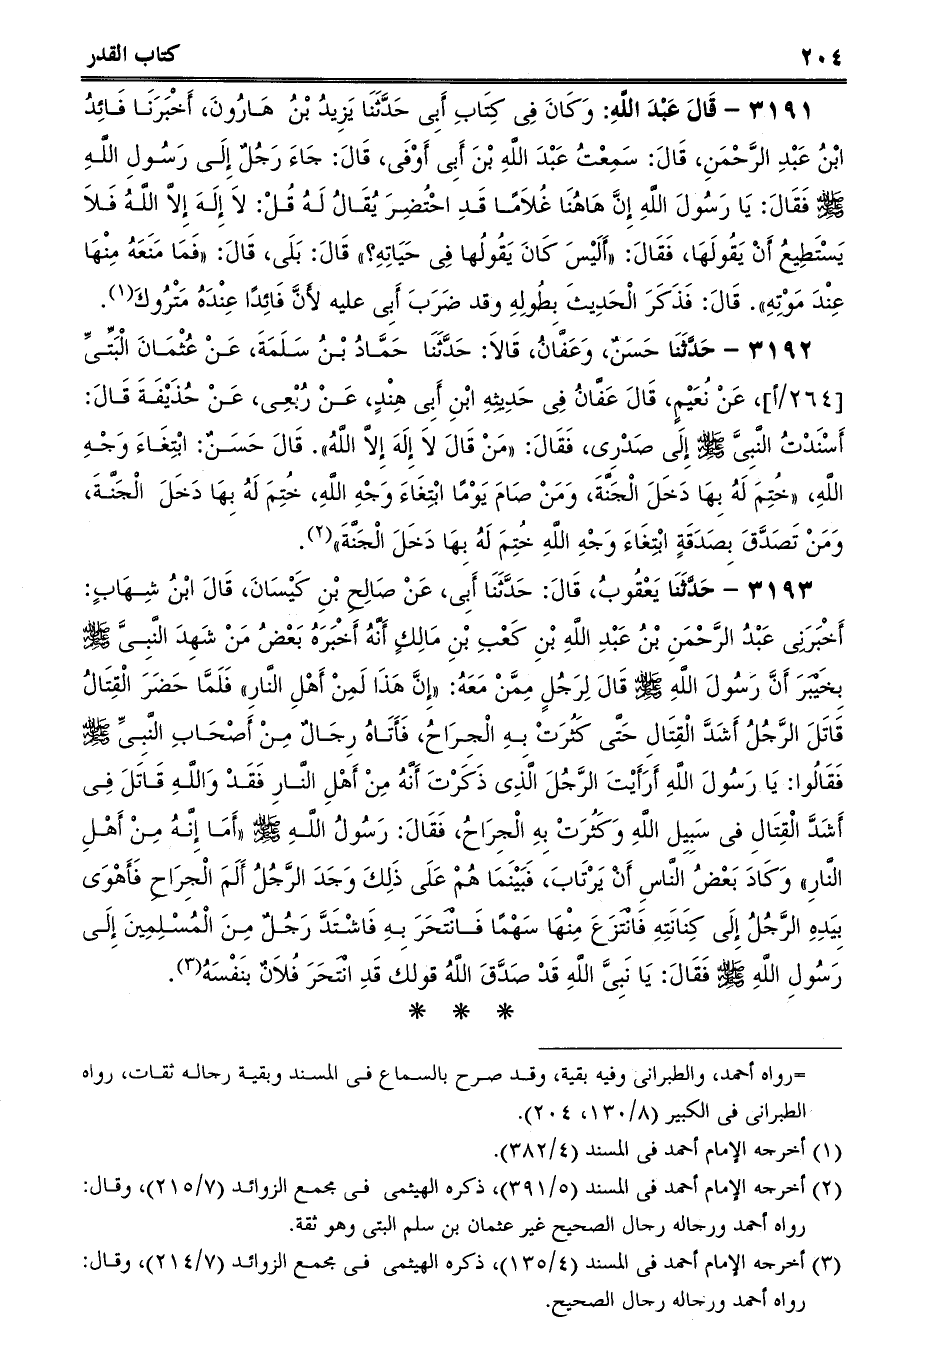 ٢٠٤ كتاب القدر
٣١٩١ – قَالَ عَبْدَ اللَّهِ: وَكَانَ فِى كِتَابِ أَبِى حَدَّثَنَا يَزِيدُ بْنُ هَارُونَ، أَخْبَرَنَا فَائِدُ
ابْنُ عَبْدِ الرَّحْمَنِ، قَالَ: سَمِعْتُ عَبْدَ اللَّهِ بْنَ أَبِى أَوْفَى، قَالَ: جَاءَ رَجُلٌ إِلَى رَسُولِ اللَّهِ
ﷺ فَقَالَ: يَا رَسُولَ اللَّهِ إِنَّ هَاهُنَا غُلاَمًا قَدِ احْتُضِرَ يُقَالُ لَهُ قُلْ: لاَ إِلَهَ إِلاَّ اللَّهُ فَلاَ
يَسْتَطِيعُ أَنْ يَقُولَهَا، فَقَالَ: «أَلَيْسَ كَانَ يَقُولُها فِى حَيَاتِهِ؟» قَالَ: بَلَى، قَالَ: «فَمَا مَنَعَهُ مِنْهَا
عِنْدَ مَوْتِهِ». قَالَ: فَذَكَرَ الْحَدِيثَ بِطُولِهِ وقد ضَرَبَ أَبِى عليه لأَنَّ فَائِدًا عِنْدَهُ مَتْرُوكَ(١).
٣١٩٢ – حَدَّثَنَا حَسَنٌ، وَعَفَّانُ، قَالاَ: حَدَّثَنَا حَمَّادُ بْنُ سَلَمَةَ، عَنْ عُثْمَانَ الْبَتِّىِّ
[٢٦٤/أ]، عَنْ نُعَيْمٍ، قَالَ عَفَّانُ فِى حَدِيثِهِ ابْنِ أَبِى هِنْدٍ، عَنْ رُبْعِى، عَنْ حُذَيْفَةَ قَالَ:
أَسْنَدْتُ النَّبِىَّ ﷺ إِلَى صَدْرِى، فَقَالَ: «مَنْ قَالَ لاَ إِلَهَ إِلاَّ اللَّهُ». قَالَ حَسَنٌ: ابْتِغَاءَ وَجْهِ
اللَّهِ، «خُتِمَ لَهُ بِهَا دَخَلَ الْجَنَّةَ، وَمَنْ صَامَ يَوْمًا ابْتِغَاءَ وَجْهِ اللَّهِ، خُتِمَ لَهُ بِهَا دَخَلَ الْجَنَّةَ،
وَمَنْ تَصَدَّقَ بِصَدَقَةٍ ابْتِغَاءَ وَجْهِ اللَّهِ خُتِمَ لَهُ بِهَا دَخَلَ الْجَنَّةَ»(٢).
٣١٩٣ – حَدَّثَنَا يَعْقُوبُ، قَالَ: حَدَّثَنَا أَبِى، عَنْ صَالِحِ بْنِ كَيْسَانَ، قَالَ ابْنُ شِهَابٍ:
أَخْبَرَنِى عَبْدُ الرَّحْمَنِ بْنُ عَبْدِ اللَّهِ بْنِ كَعْبِ بْنِ مَالِكٍ أَنَّهُ أَخْبَرَهُ بَعْضُ مَنْ شَهِدَ النَّبِىَّ ﷺ
بِخَيْبَرَ أَنَّ رَسُولَ اللَّهِ ﷺ قَالَ لِرَجُلٍ مِمَّنْ مَعَهُ: «إِنَّ هَذَا لَمِنْ أَهْلِ النَّارِ» فَلَمَّا حَضَرَ الْقِتَالُ
قَاتَلَ الرَّجُلُ أَشَدَّ الْقِتَالِ حَتَّى كَثُرَتْ بِهِ الْجِرَاحُ، فَأَتَاهُ رِجَالٌ مِنْ أَصْحَابِ النَّبِىِّ ﷺ
فَقَالُوا: يَا رَسُولَ اللَّهِ أَرَأَيْتَ الرَّجُلَ الَّذِى ذَكَرْتَ أَنَّهُ مِنْ أَهْلِ النَّارِ فَقَدْ وَاللَّهِ قَاتَلَ فِى
أَشَدَّ الْقِتَالِ فى سَبِيلِ اللَّهِ وَكَثُرَتْ بِهِ الْجِرَاحُ، فَقَالَ: رَسُولُ اللَّهِ ﷺ «أَمَا إِنَّهُ مِنْ أَهْلِ
النَّارِ» وَكَادَ بَعْضُ النَّاسِ أَنْ يَرْتَابَ، فَبَيْنَمَا هُمْ عَلَى ذَلِكَ وَجَدَ الرَّجُلُ أَلَمَ الْجِرَاحِ فَأَهْوَى
بِيَدِهِ الرَّجُلُ إِلَى كِنَانَتِهِ فَانْتَزَعَ مِنْهَا سَهْمًا فَانْتَحَرَ بِهِ فَاشْتَدَّ رَجُلٌ مِنَ الْمُسْلِمِينَ إِلَى
رَسُولِ اللَّهِ ﷺ فَقَالَ: يَا نَبِىَّ اللَّهِ قَدْ صَدَّقَ اللَّهُ قولك قَدِ انْتَحَرَ فُلاَنٌ بِنَفْسَهُ(٣).
* * *
=رواه أحمد، والطبرانى وفيه بقية، وقد صرح بالسماع فى المسند وبقية رجاله ثقات، رواه
الطبرانى فى الكبير (١٣٠/٨، ٢٠٤).
(١) أخرجه الإمام أحمد فى المسند (٣٨٢/٤).
(٢) أخرجه الإمام أحمد فى المسند (٣٩١/٥)، ذكره الهيثمى فى مجمع الزوائد (٢١٥/٧)، وقال:
رواه أحمد ورجاله رجال الصحيح غير عثمان بن سلم البتى وهو ثقة.
(٣) أخرجه الإمام أحمد فى المسند (١٣٥/٤)، ذكره الهيثمى فى مجمع الزوائد (٢١٤/٧)، وقال:
رواه أحمد ورجاله رجال الصحيح.